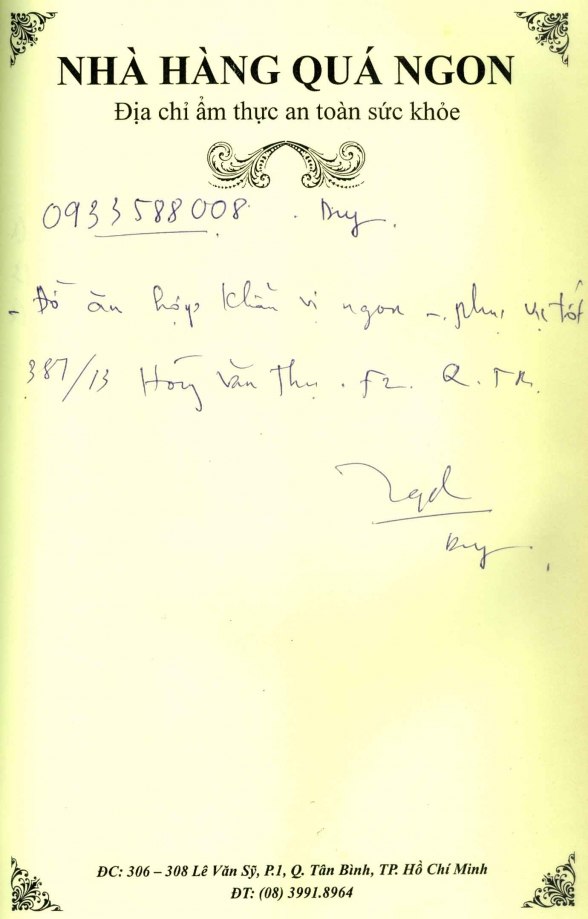 NHÀ HÀNG QUÁ NGON
Địa chỉ ẩm thực an toàn sức khỏe
0933588008 . Duy.
- Đồ ăn hợp khẩu vị ngon - phục vụ tốt
387/13 Hoàng Văn Thụ . F2. Q. TB.
Duy
ĐC: 306 – 308 Lê Văn Sỹ, P.1, Q. Tân Bình, TP. Hồ Chí Minh
ĐT: (08) 3991.8964